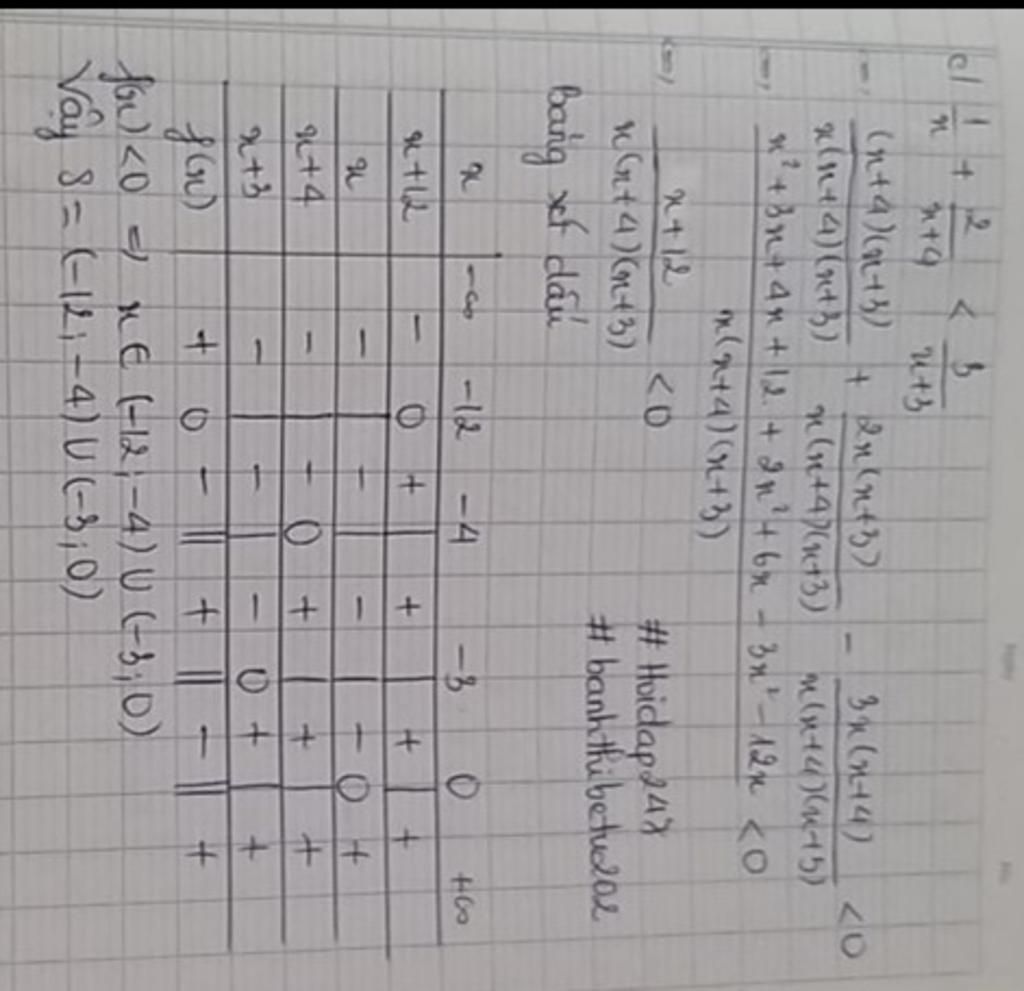 c/ 1/x + 2/(x+4) < 3/(x+3)
<=> (x+4)(x+3)/(x(x+4)(x+3)) + 2x(x+3)/(x(x+4)(x+3)) - 3x(x+4)/(x(x+4)(x+3)) < 0
<=> (x² + 3x + 4x + 12 + 2x² + 6x - 3x² - 12x)/(x(x+4)(x+3)) < 0
<=> (x+12)/(x(x+4)(x+3)) < 0
# Hoidap247
# banhthibetu202
bảng xét dấu
x -∞ -12 -4 -3 0 +∞
x+12 - 0 + | + | + | +
x - | - | - | - 0 +
x+4 - | - 0 + | + | +
x+3 - | - | - 0 + | +
f(x) + 0 - || + || - || +
f(x) < 0 => x ∈ (-12; -4) ∪ (-3; 0)
Vậy S = (-12; -4) ∪ (-3; 0)